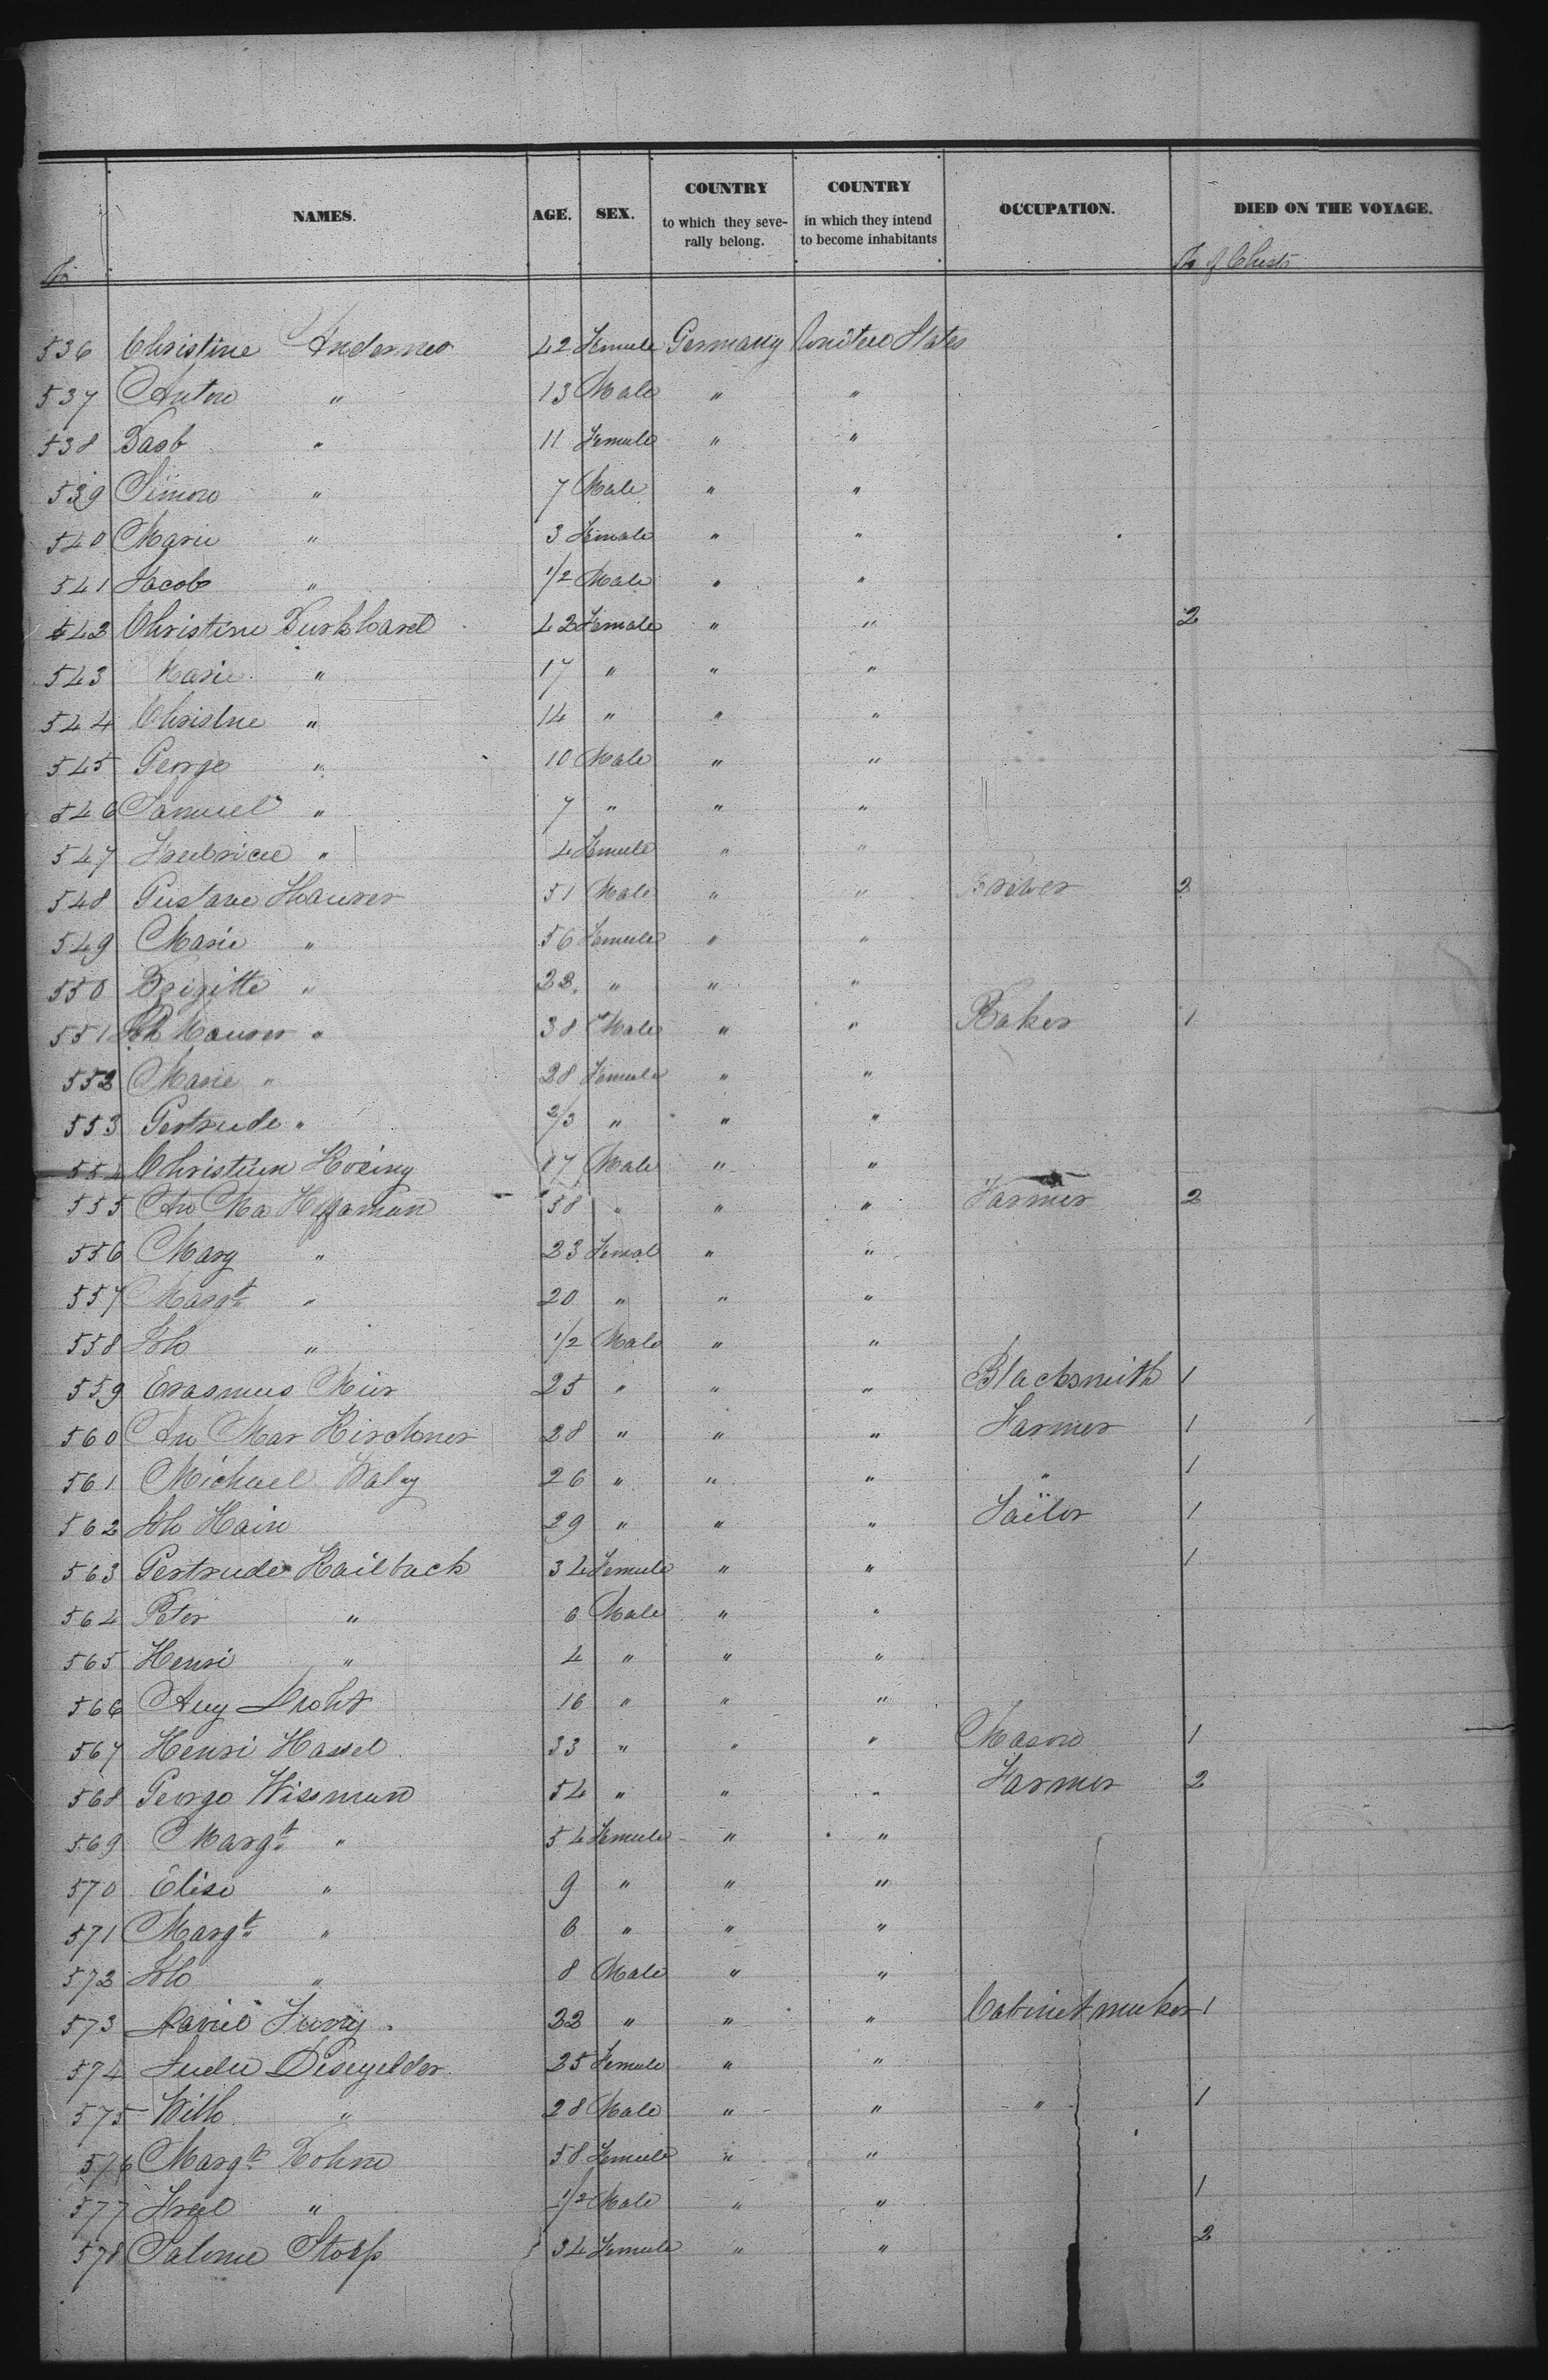 NAMES. AGE. SEX. COUNTRY to which they seve- rally belong. COUNTRY in which they intend to become inhabitants OCCUPATION. DIED ON THE VOYAGE.
No No of Chests
536 Christine 42 Female Germany United States
537 Anton " 13 Male " "
538 " 11 Female " "
539 Simon " 7 Male " "
540 Marie " 3 Female " "
541 Jacob " 1/2 Male " "
542 Christine Burkhard 42 Female " " 2
543 Marie " 17 " " "
544 Christne " 14 " " "
545 George " 10 Male " "
546 Samuel " 7 " " "
547 " 4 Female " "
548 Gustave Haurer 51 Male " " 2
549 Marie " 56 Female " "
550 Brigitte " 22 " " "
551 Joh Maurer " 38 Male " " Baker 1
552 Marie " 28 Female " "
553 Gertrude " 2/3 " " "
554 Christian 17 Male " "
555 58 " " " Farmer 2
556 Marg " 23 Femal " "
557 Margt " 20 " " "
558 Joh " 1/2 Male " "
559 Erasmus 25 " " " Blacksmith 1
560 Mar Kirchner 28 " " " Farmer 1
561 Michael 26 " " " " 1
562 Joh Hain 29 " " " 1
563 Gertrude Kailbach 34 Female " " 1
564 Peter " 6 Male " "
565 Henri " 4 " " "
566 Aug 16 " " "
567 Henri Hassel 33 " " " Mason 1
568 George Wissman 54 " " " Farmer 2
569 Margt " 54 Female " "
570 Elise " 9 " " "
571 Margt " 6 " " "
572 Joh " 8 Male " "
573 David 22 " " " Cabinetmaker 1
574 25 Female " "
575 Wilh " 28 Male " " " 1
576 Margt 58 Female " "
577 Fred " 1/2 Male " " 1
578 Salome 34 Female " " 2